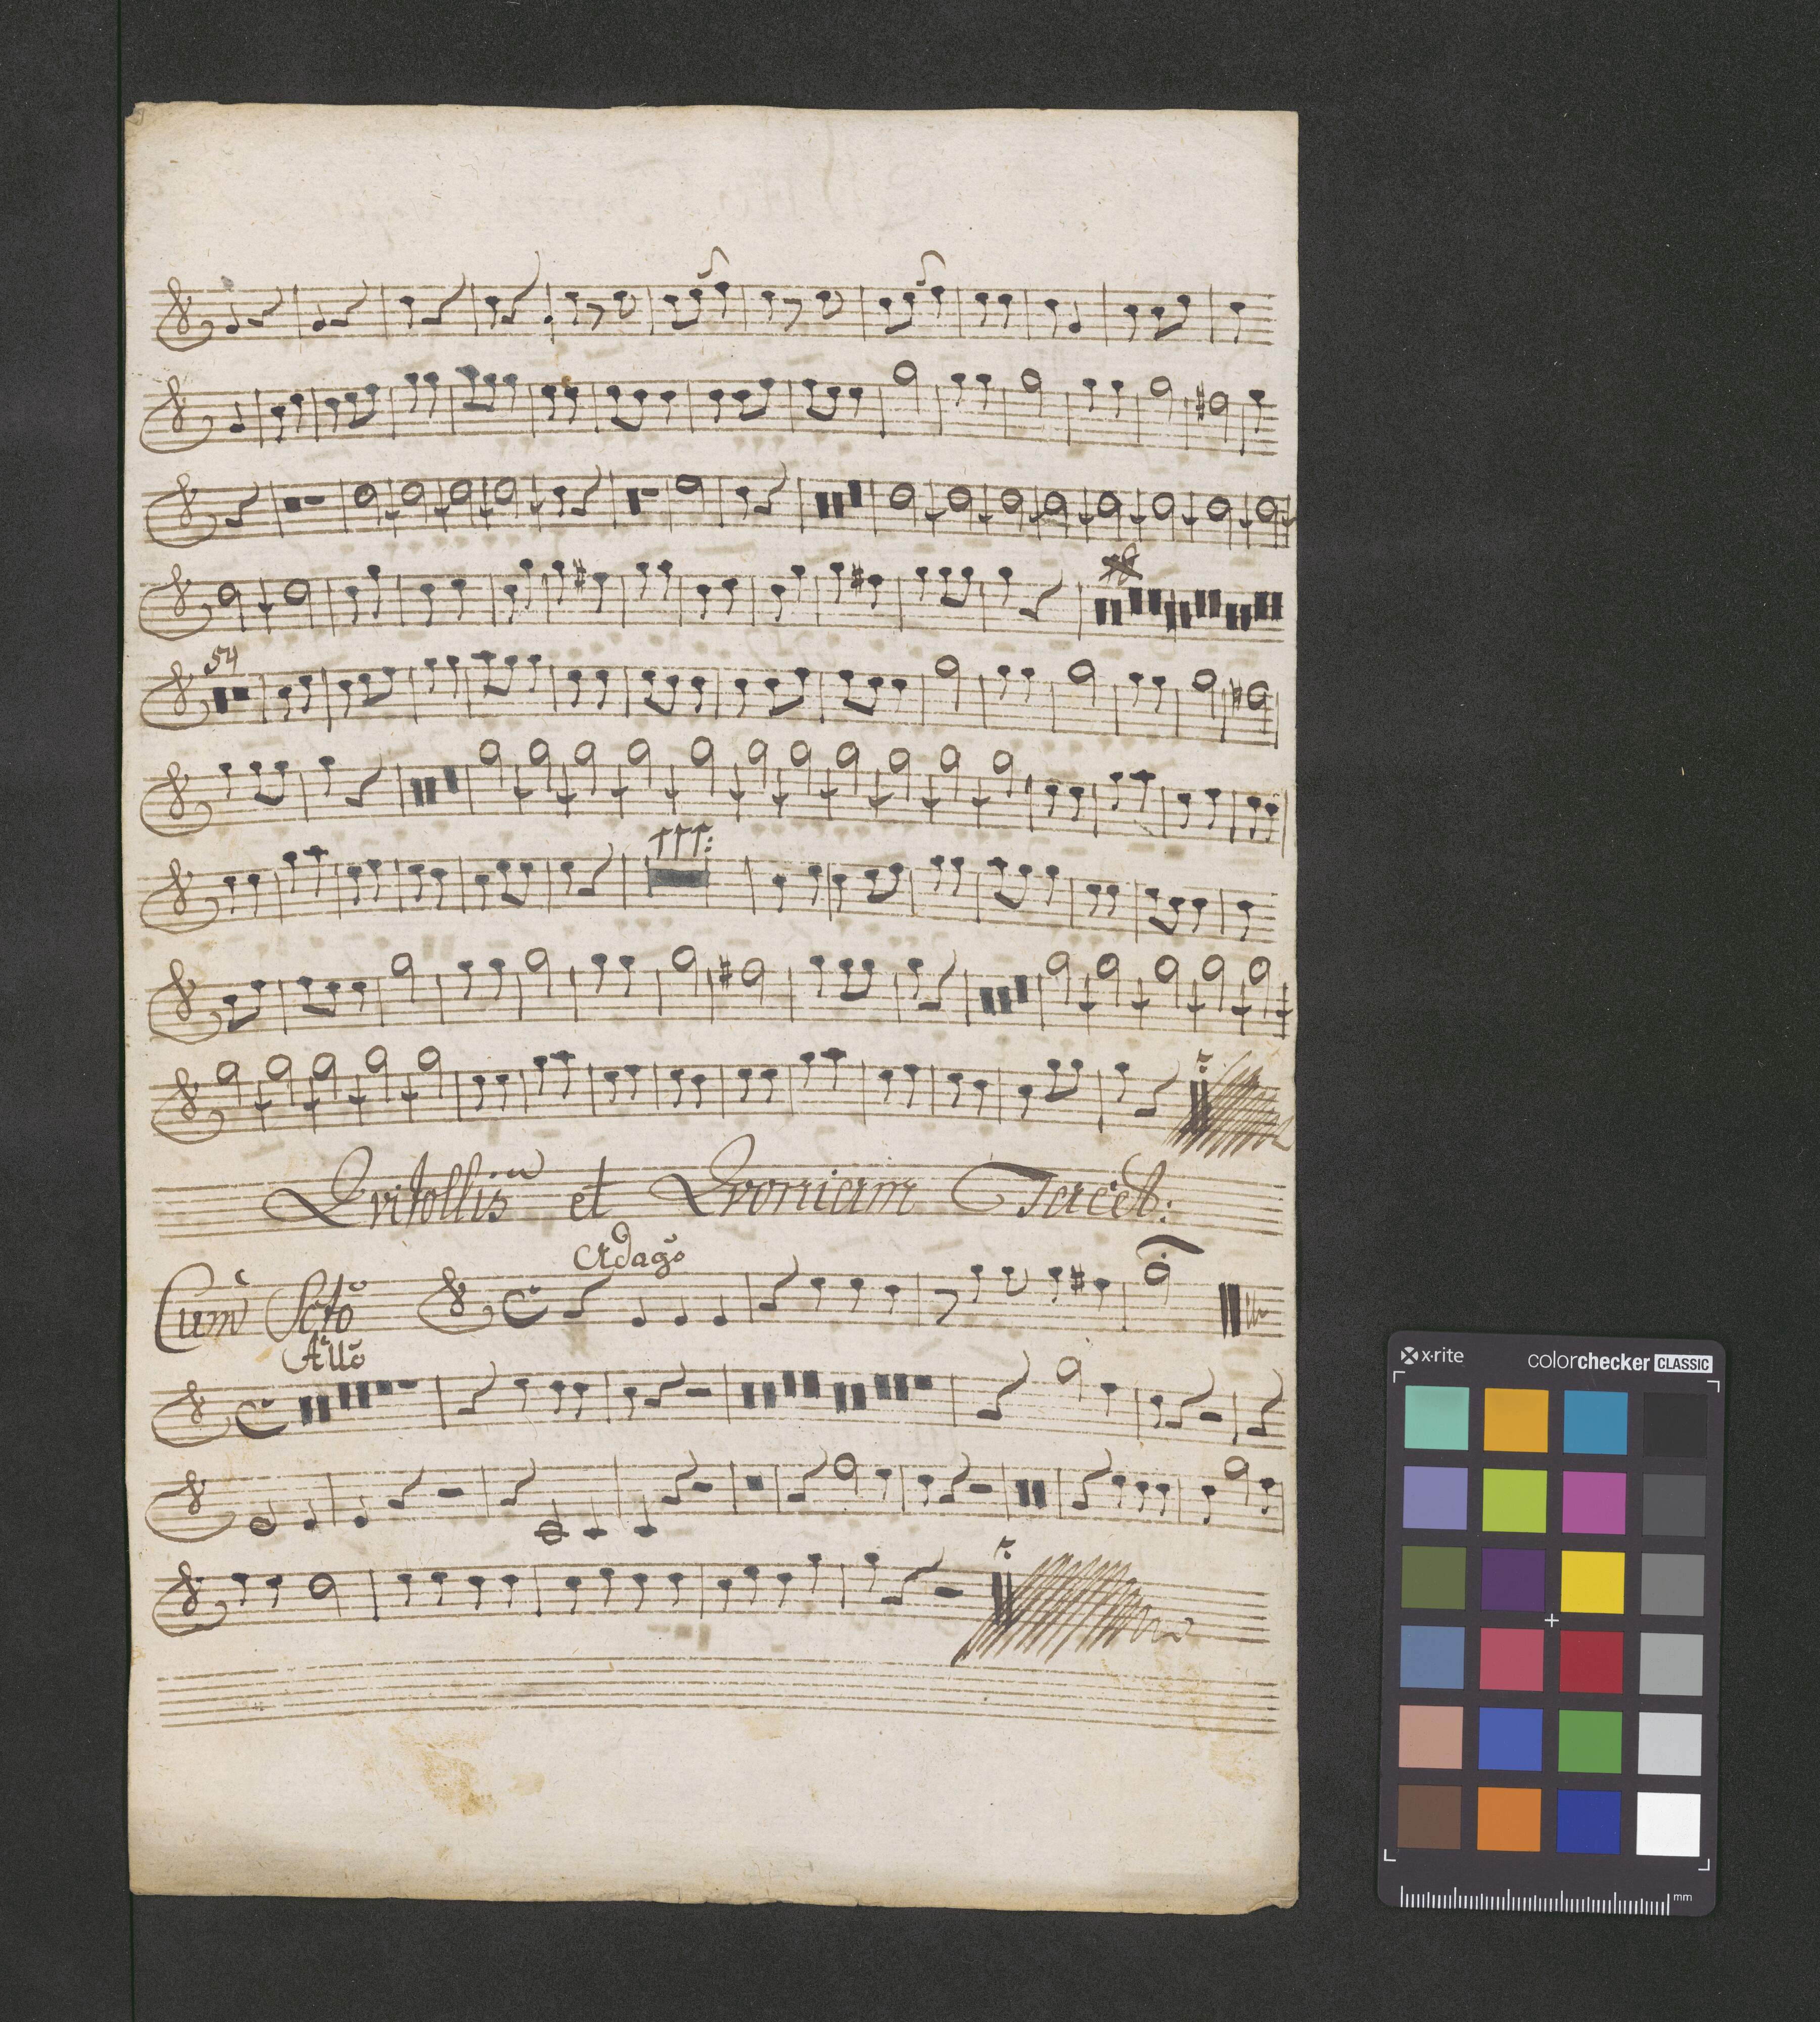 54
Qvitollis et Qvoniam Tacet:
Adagõ
Cum Sctõ
Allõ
x-rite
colorchecker CLASSIC
mm